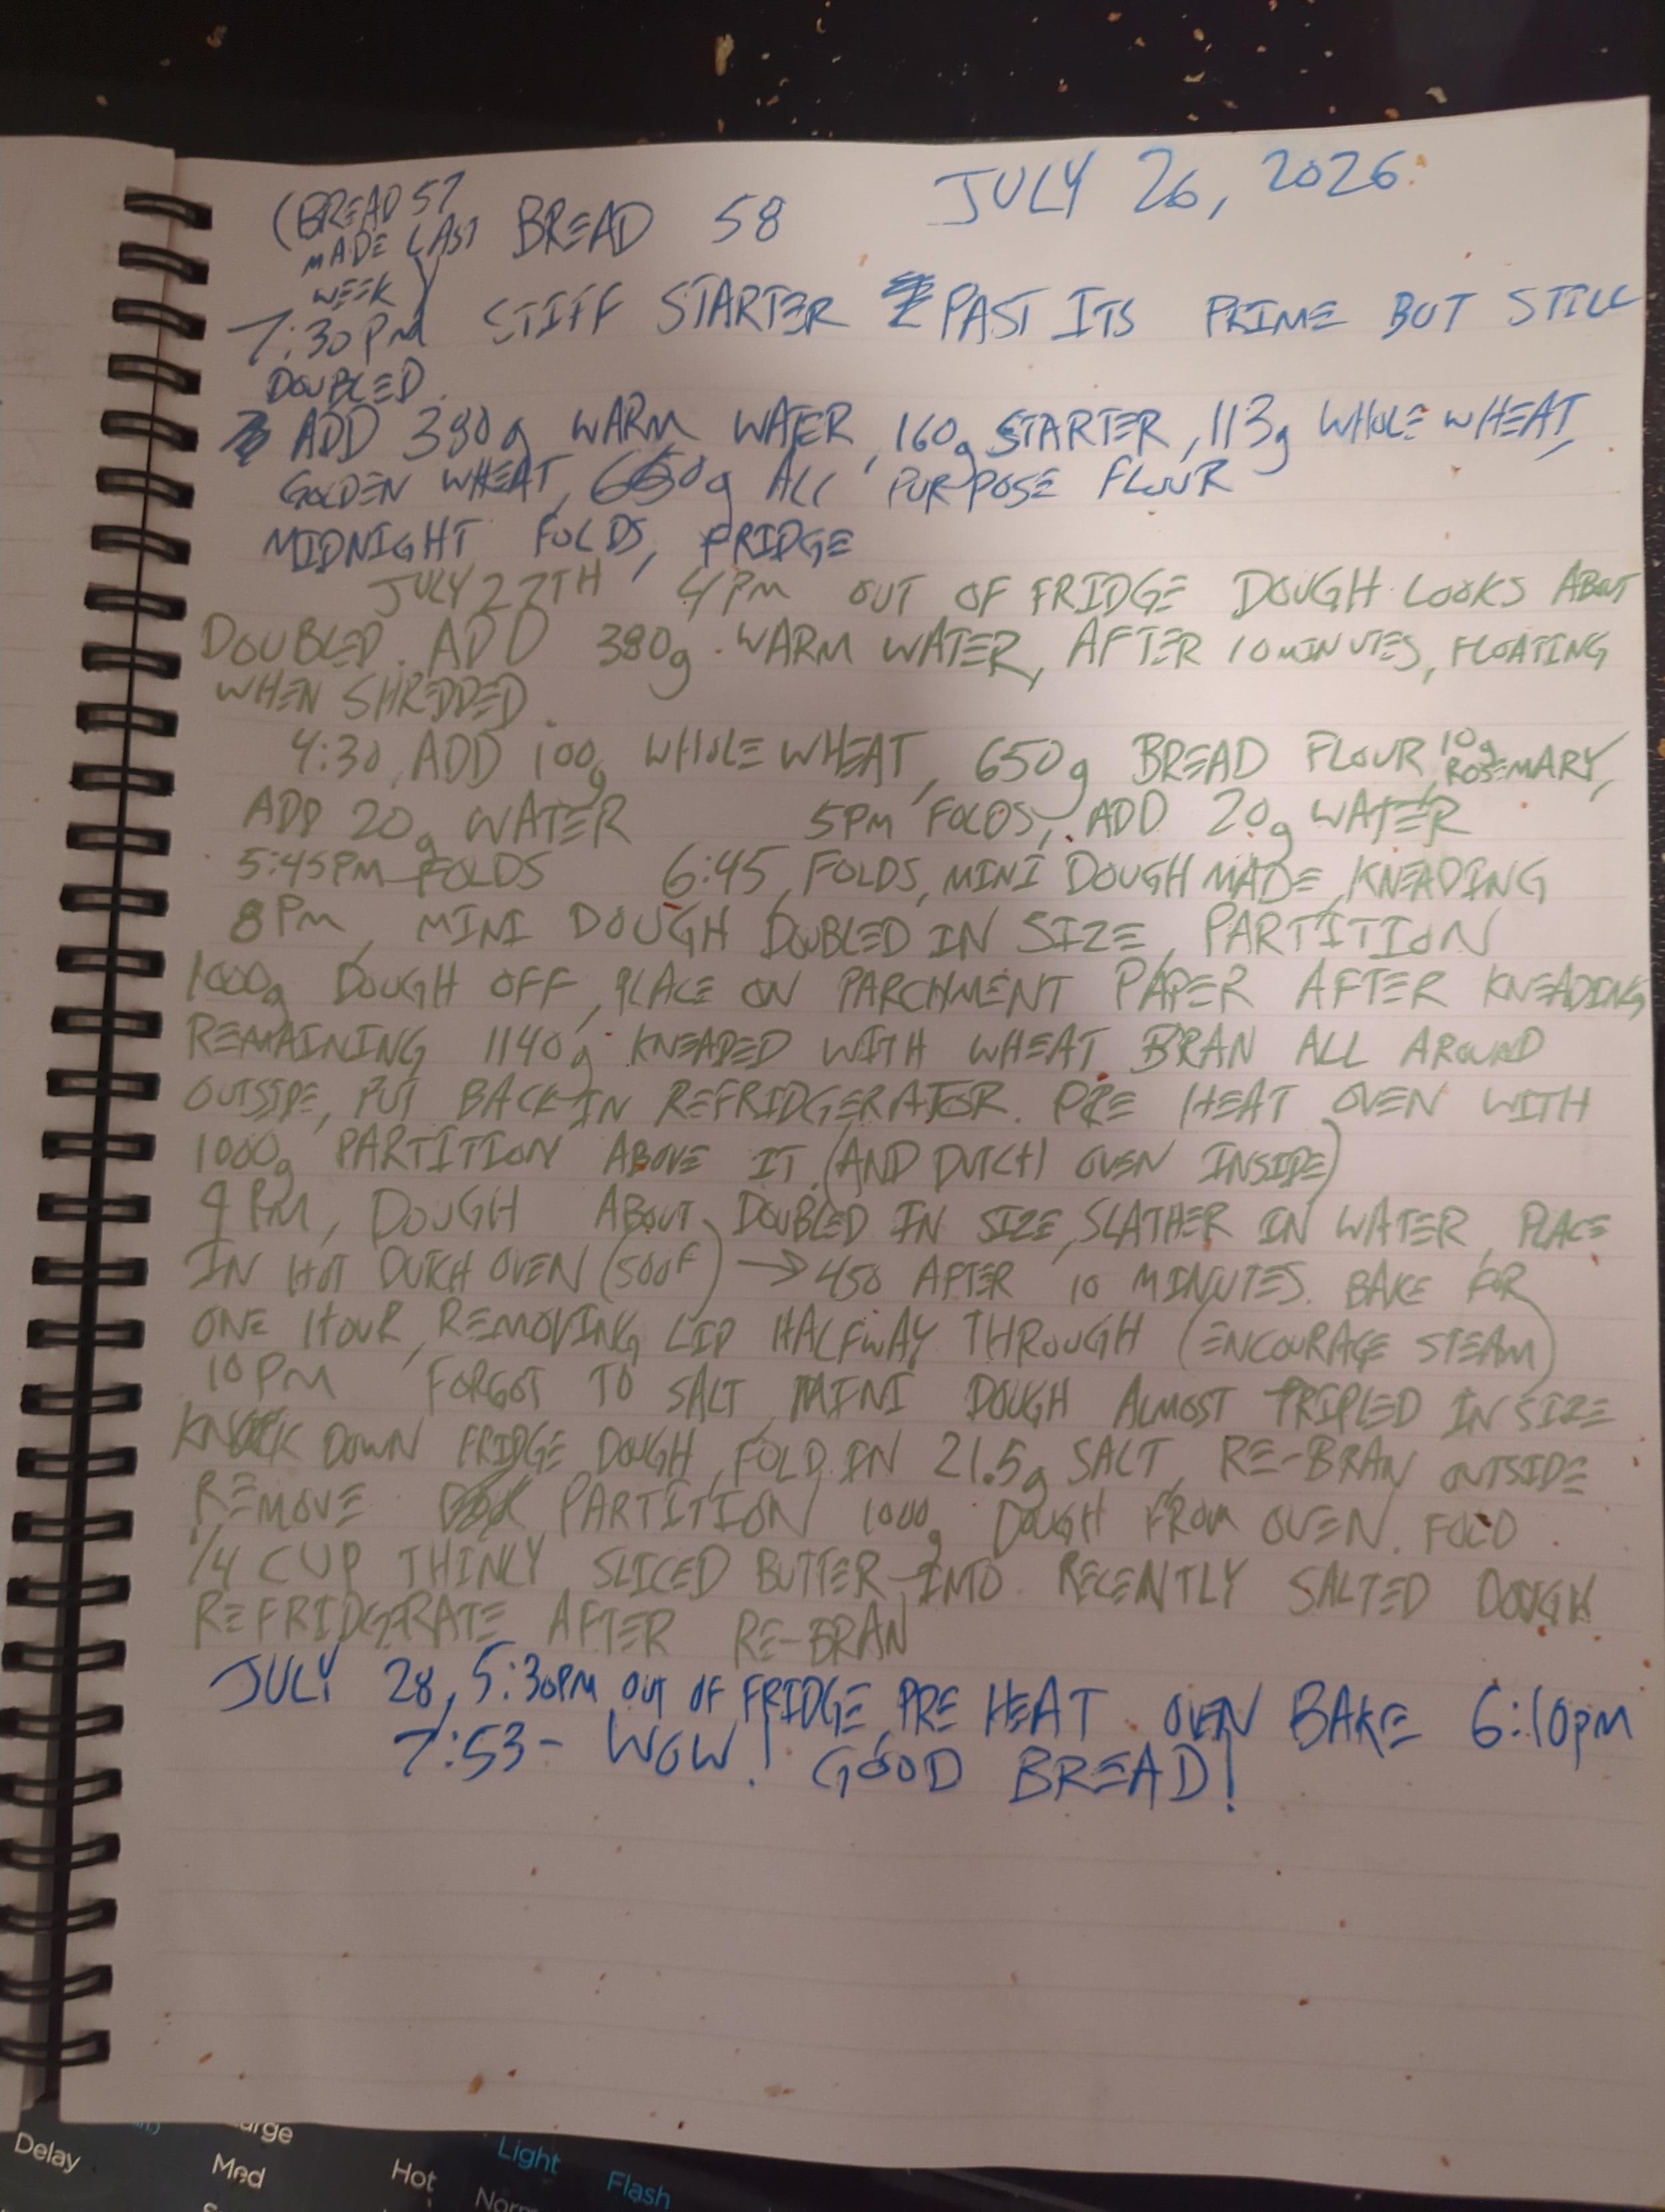 (BREAD 57
MADE LAST
WEEK)
BREAD 58
JULY 26, 2026
7:30PM STIFF STARTER PAST ITS PRIME BUT STILL
DOUBLED.
ADD 380g WARM WATER, 160g STARTER, 113g WHOLE WHEAT,
GOLDEN WHEAT, 650g ALL PURPOSE FLOUR
MIDNIGHT FOLDS, FRIDGE
JULY 27TH, 4PM OUT OF FRIDGE DOUGH LOOKS ABOUT
DOUBLED. ADD 380g WARM WATER, AFTER 10 MINUTES, FLOATING
WHEN SHREDDED.
4:30, ADD 100g WHOLE WHEAT, 650g BREAD FLOUR, 10g ROSEMARY,
ADD 20g WATER 5PM FOLDS, ADD 20g WATER
5:45PM FOLDS 6:45, FOLDS, MINI DOUGH MADE, KNEADING
8PM, MINI DOUGH DOUBLED IN SIZE, PARTITION
1000g DOUGH OFF, PLACE ON PARCHMENT PAPER AFTER KNEADING
REMAINING 1140g KNEADED WITH WHEAT BRAN ALL AROUND
OUTSIDE, PUT BACK IN REFRIDGERATOR. PRE HEAT OVEN WITH
1000g PARTITION ABOVE IT. (AND DUTCH OVEN INSIDE)
9PM, DOUGH ABOUT DOUBLED IN SIZE, SLATHER IN WATER, PLACE
IN HOT DUTCH OVEN (500F) → 450 AFTER 10 MINUTES. BAKE FOR
ONE HOUR, REMOVING LID HALFWAY THROUGH (ENCOURAGE STEAM)
10PM FORGOT TO SALT, MINI DOUGH ALMOST TRIPLED IN SIZE
KNOCK DOWN FRIDGE DOUGH, FOLD IN 21.5g SALT, RE-BRAN OUTSIDE
REMOVE PARTITION 1000g DOUGH FROM OVEN. FOLD
1/4 CUP THINLY SLICED BUTTER INTO RECENTLY SALTED DOUGH
REFRIDGERATE AFTER RE-BRAN
JULY 28, 5:30PM OUT OF FRIDGE, PRE HEAT OVEN BAKE 6:10pm
7:53- WOW! GOOD BREAD!
Delay
Med
Hot
Light
Flash